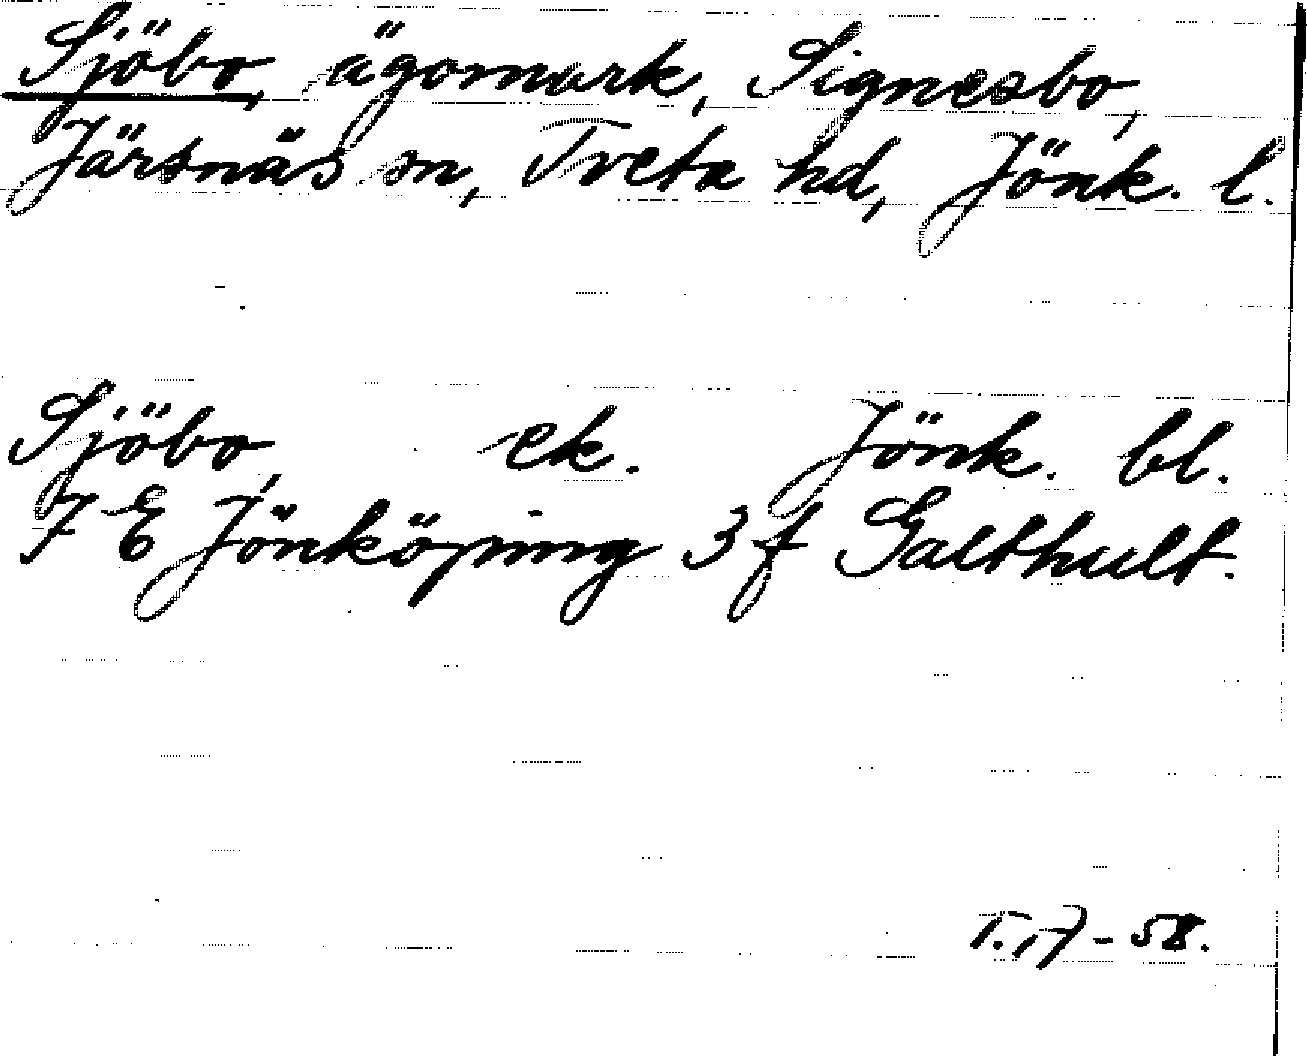 Sjöbo, ägomark, Signesbo,
Järsnäs sn, Tveta hd, Jönk. l.
Sjöbo, ek. Jönk. bl.
7 E Jönköping 3 f Galthult.
T.17-58.